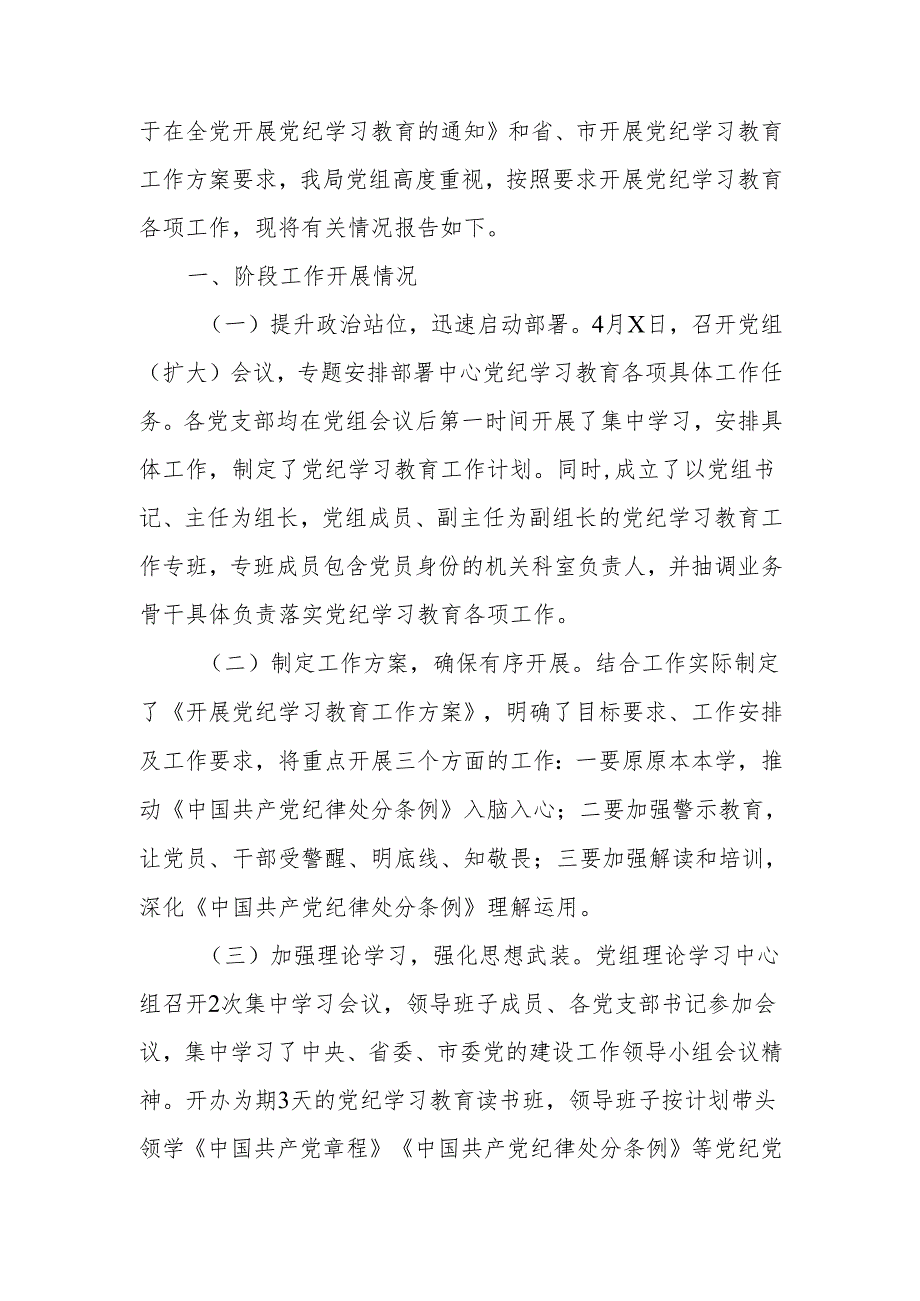 于在全党开展党纪学习教育的通知》和省、市开展党纪学习教育
工作方案要求，我局党组高度重视，按照要求开展党纪学习教育
各项工作，现将有关情况报告如下。
一、阶段工作开展情况
（一）提升政治站位，迅速启动部署。4月X日，召开党组
（扩大）会议，专题安排部署中心党纪学习教育各项具体工作任
务。各党支部均在党组会议后第一时间开展了集中学习，安排具
体工作，制定了党纪学习教育工作计划。同时,成立了以党组书
记、主任为组长，党组成员、副主任为副组长的党纪学习教育工
作专班，专班成员包含党员身份的机关科室负责人，并抽调业务
骨干具体负责落实党纪学习教育各项工作。
（二）制定工作方案，确保有序开展。结合工作实际制定
了《开展党纪学习教育工作方案》，明确了目标要求、工作安排
及工作要求，将重点开展三个方面的工作：一要原原本本学，推
动《中国共产党纪律处分条例》入脑入心；二要加强警示教育，
让党员、干部受警醒、明底线、知敬畏；三要加强解读和培训，
深化《中国共产党纪律处分条例》理解运用。
（三）加强理论学习，强化思想武装。党组理论学习中心
组召开2次集中学习会议，领导班子成员、各党支部书记参加会
议，集中学习了中央、省委、市委党的建设工作领导小组会议精
神。开办为期3天的党纪学习教育读书班，领导班子按计划带头
领学《中国共产党章程》《中国共产党纪律处分条例》等党纪党